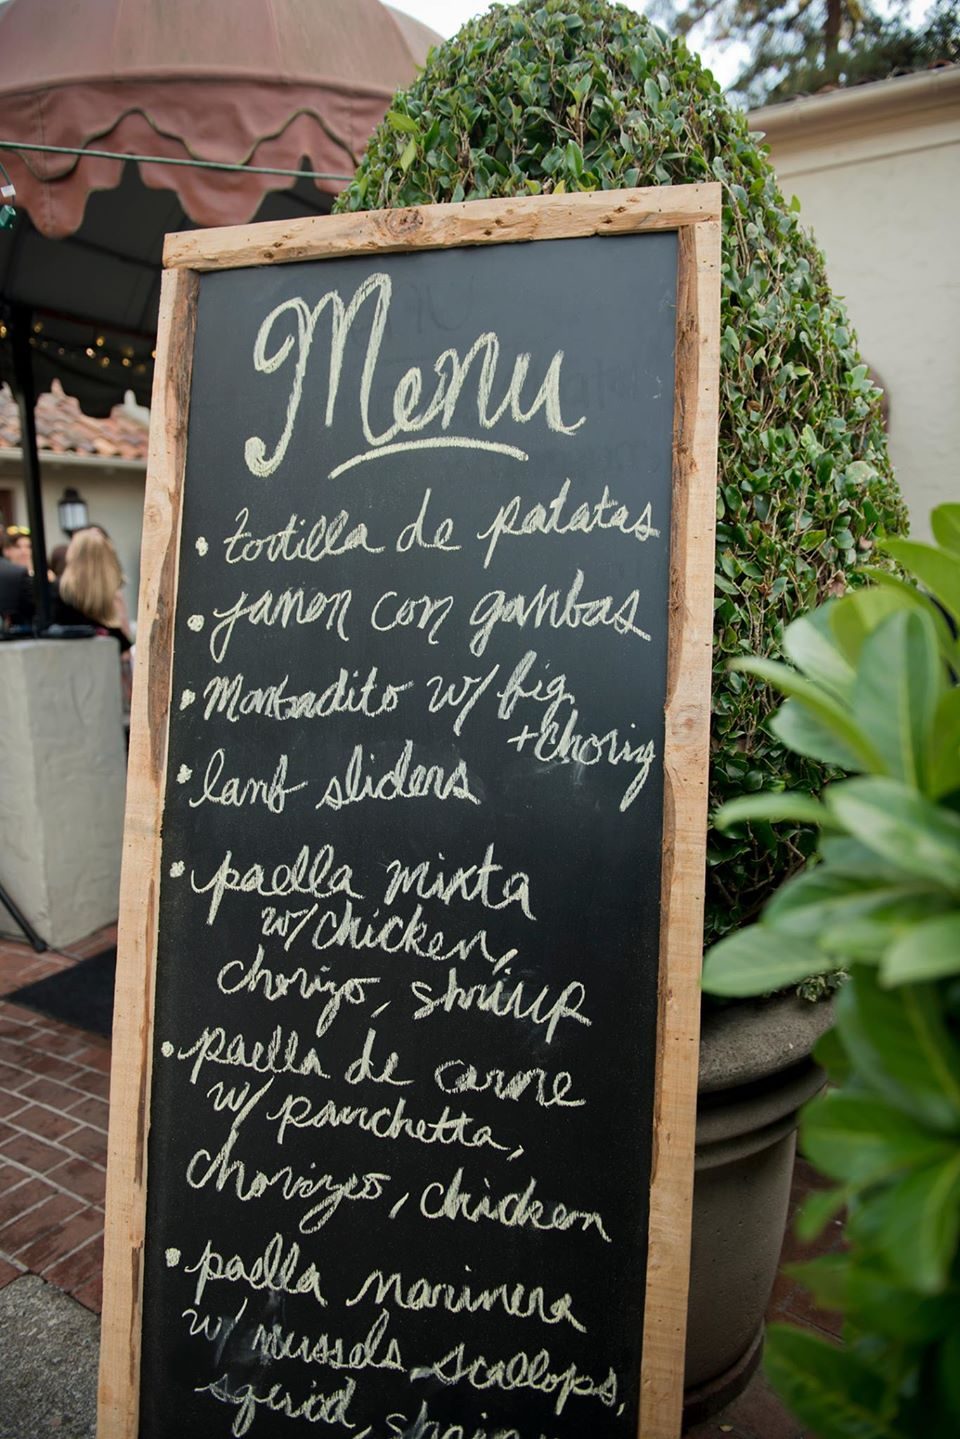 Menu
• tortilla de patatas
• jamon con gambas
• Montadito w/ fig
+ Choriz
• lamb sliders
• paella mixta
w/ Chicken,
chorizo, shrimp
• paella de carne
w/ panchetta,
Chorizo, Chicken
• paella marinera
w/ mussels, scallops,
squid,